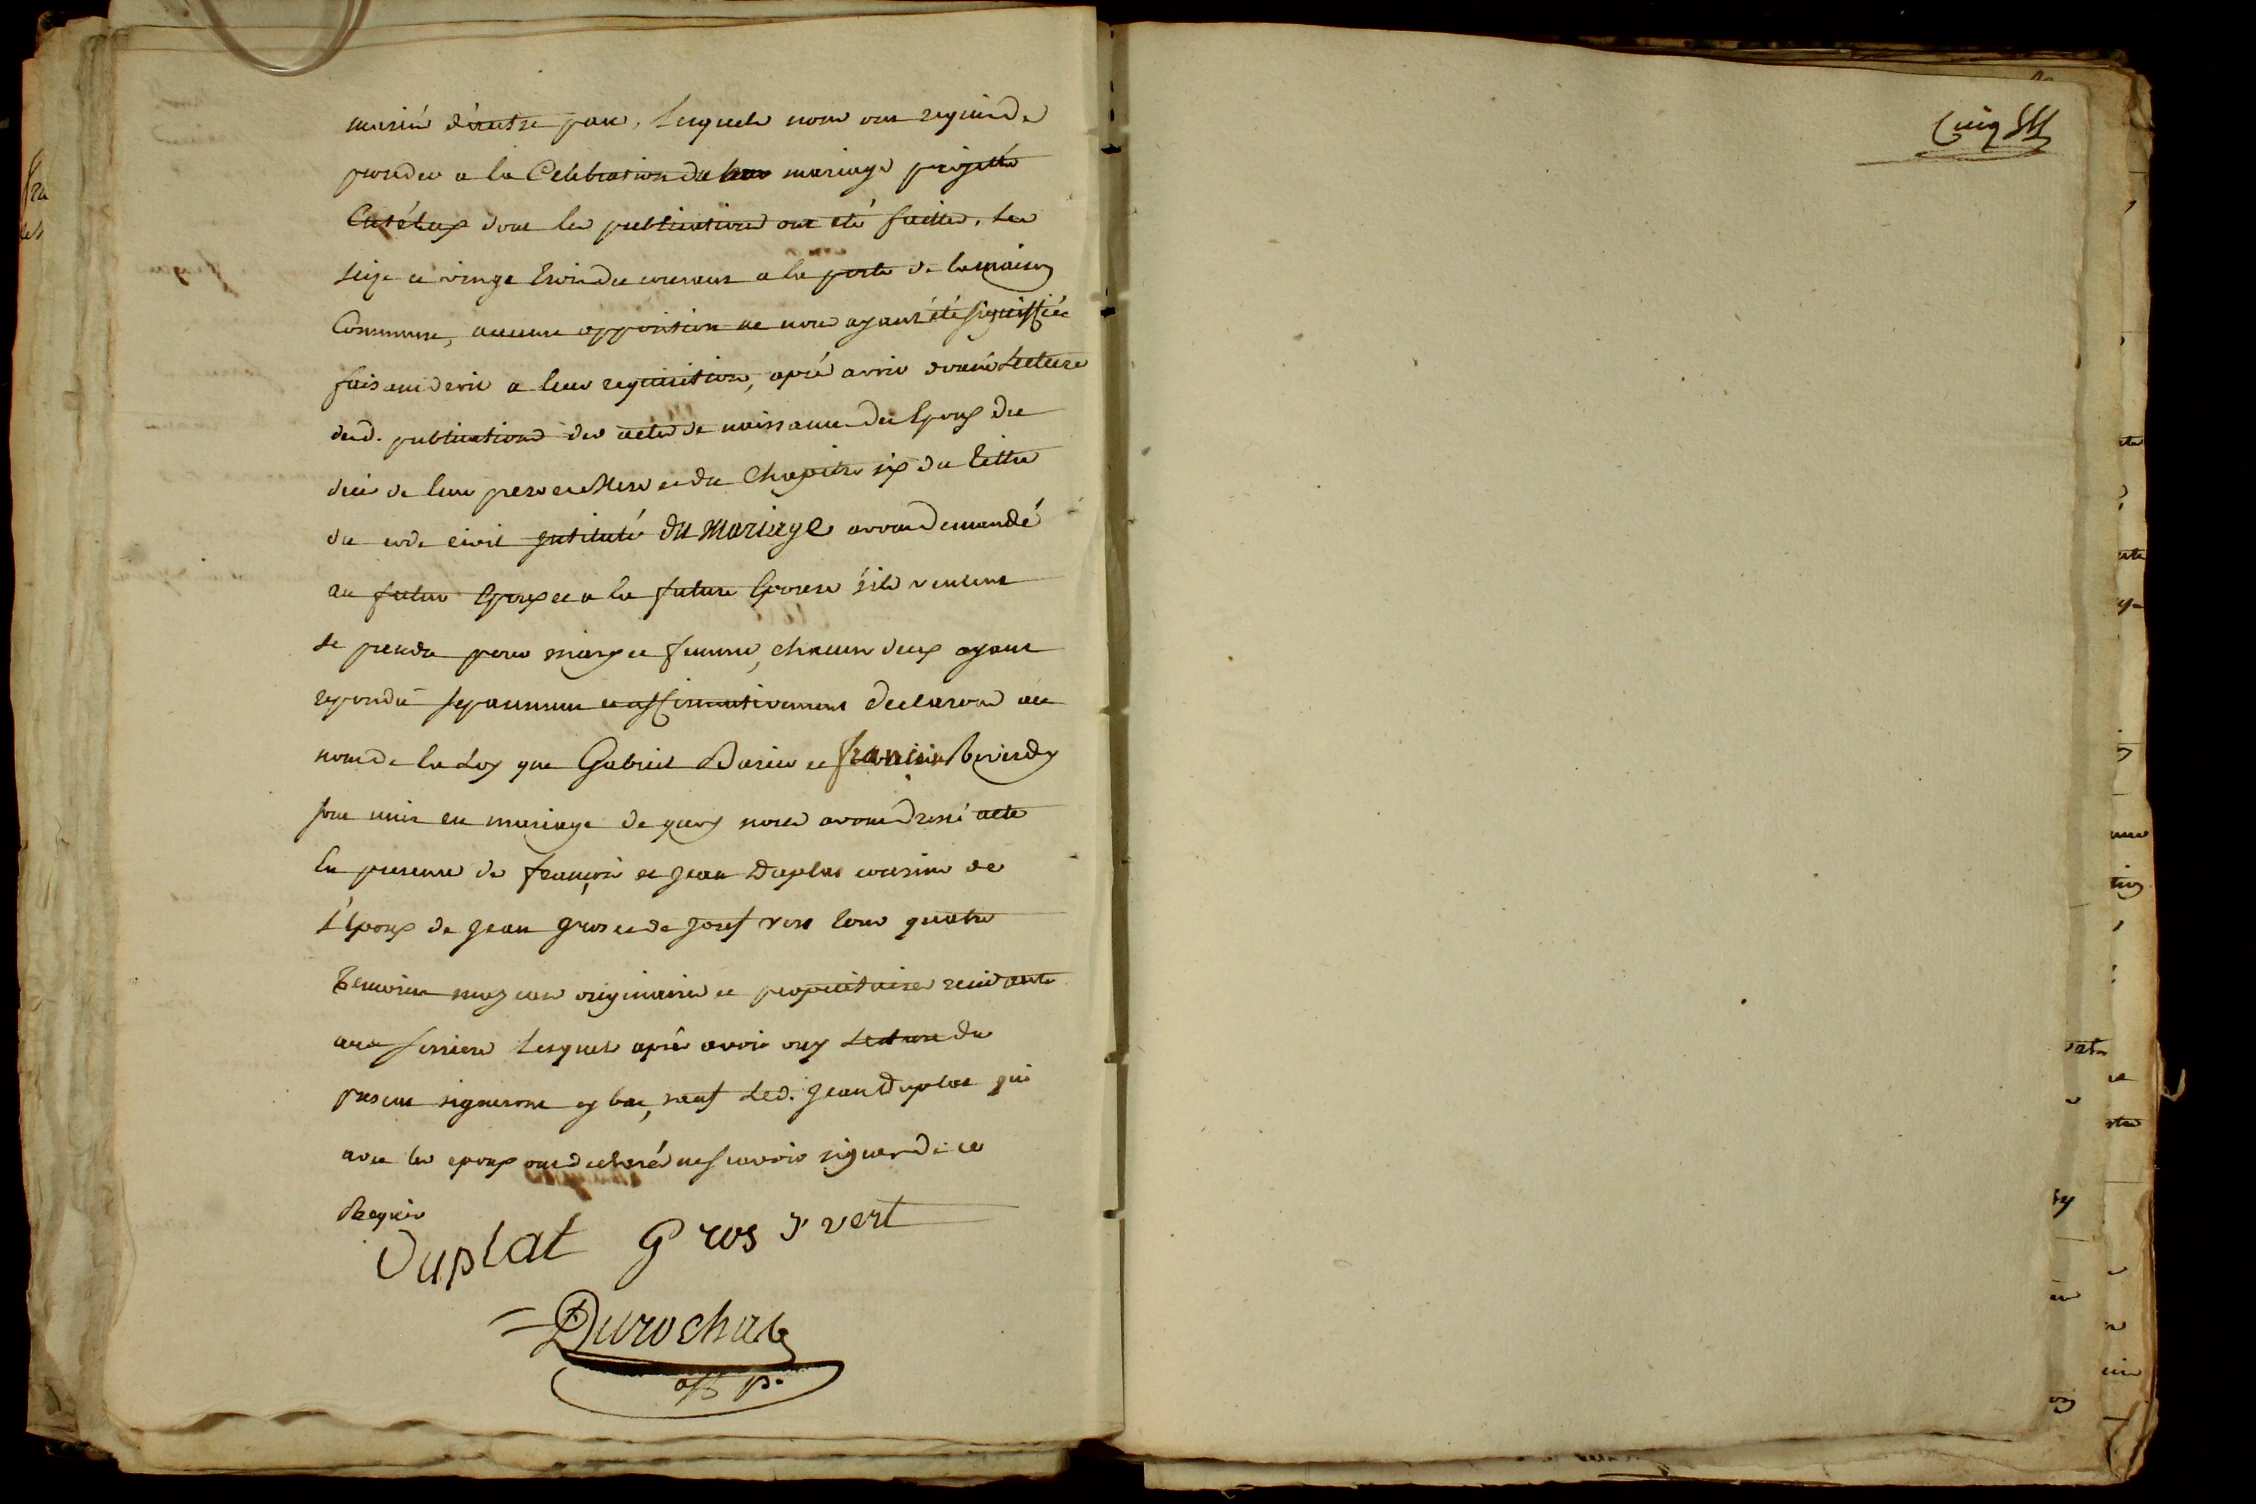 mariés d'autre part, Lesquels nous ont requis de
proceder a la Celebration du mariage projetté
Entr'eux dont les publications ont été faittes, les
seize et vingt trois du courant a la porte de la maison
Commune, aucune opposition ne nous ayant été signiffiée
faisant droit a leur requisition, après avoir donné Lecture
desd. publications des actes de naissance des Epoux du
deces de leurs pere et Mere et du Chapitre six du tittre
du code civil Intitulé du Mariage avons demandé
au futur Epoux et a la future Epouse s'ils veulent
se prendre pour mary et femme, chacun deux ayant
repondu separement et affirmativement declarons au
nom de la Loy que Gabriel et
sont unis en mariage de quoy nous avons dressé acte
En presence de françois et Jean Duplat cousins de
L'Epoux de Jean gros et de Josef vert tous quatre
Temoins majeurs originaires et proprietaires residants
aud. Lesquels après avoir ouy Lecture du
present signeront cy bas, sauf Led. Jean Duplat qui
avec les epoux ont declaré ne sçavoir signer de ce
Requis
Duplat Gros J vert
Durochat
off p.
Cinq